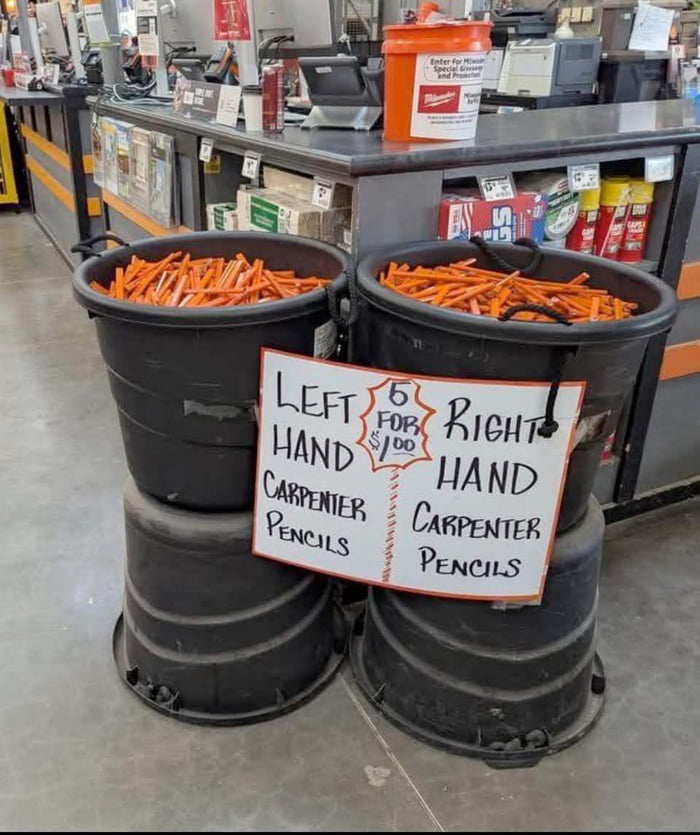 Enter for Milwaukee
Special Giveaway
and Promotion
Milwaukee
GS
LEFT
HAND
CARPENTER
PENCILS
5
FOR
$1.00
RIGHT
HAND
CARPENTER
PENCILS